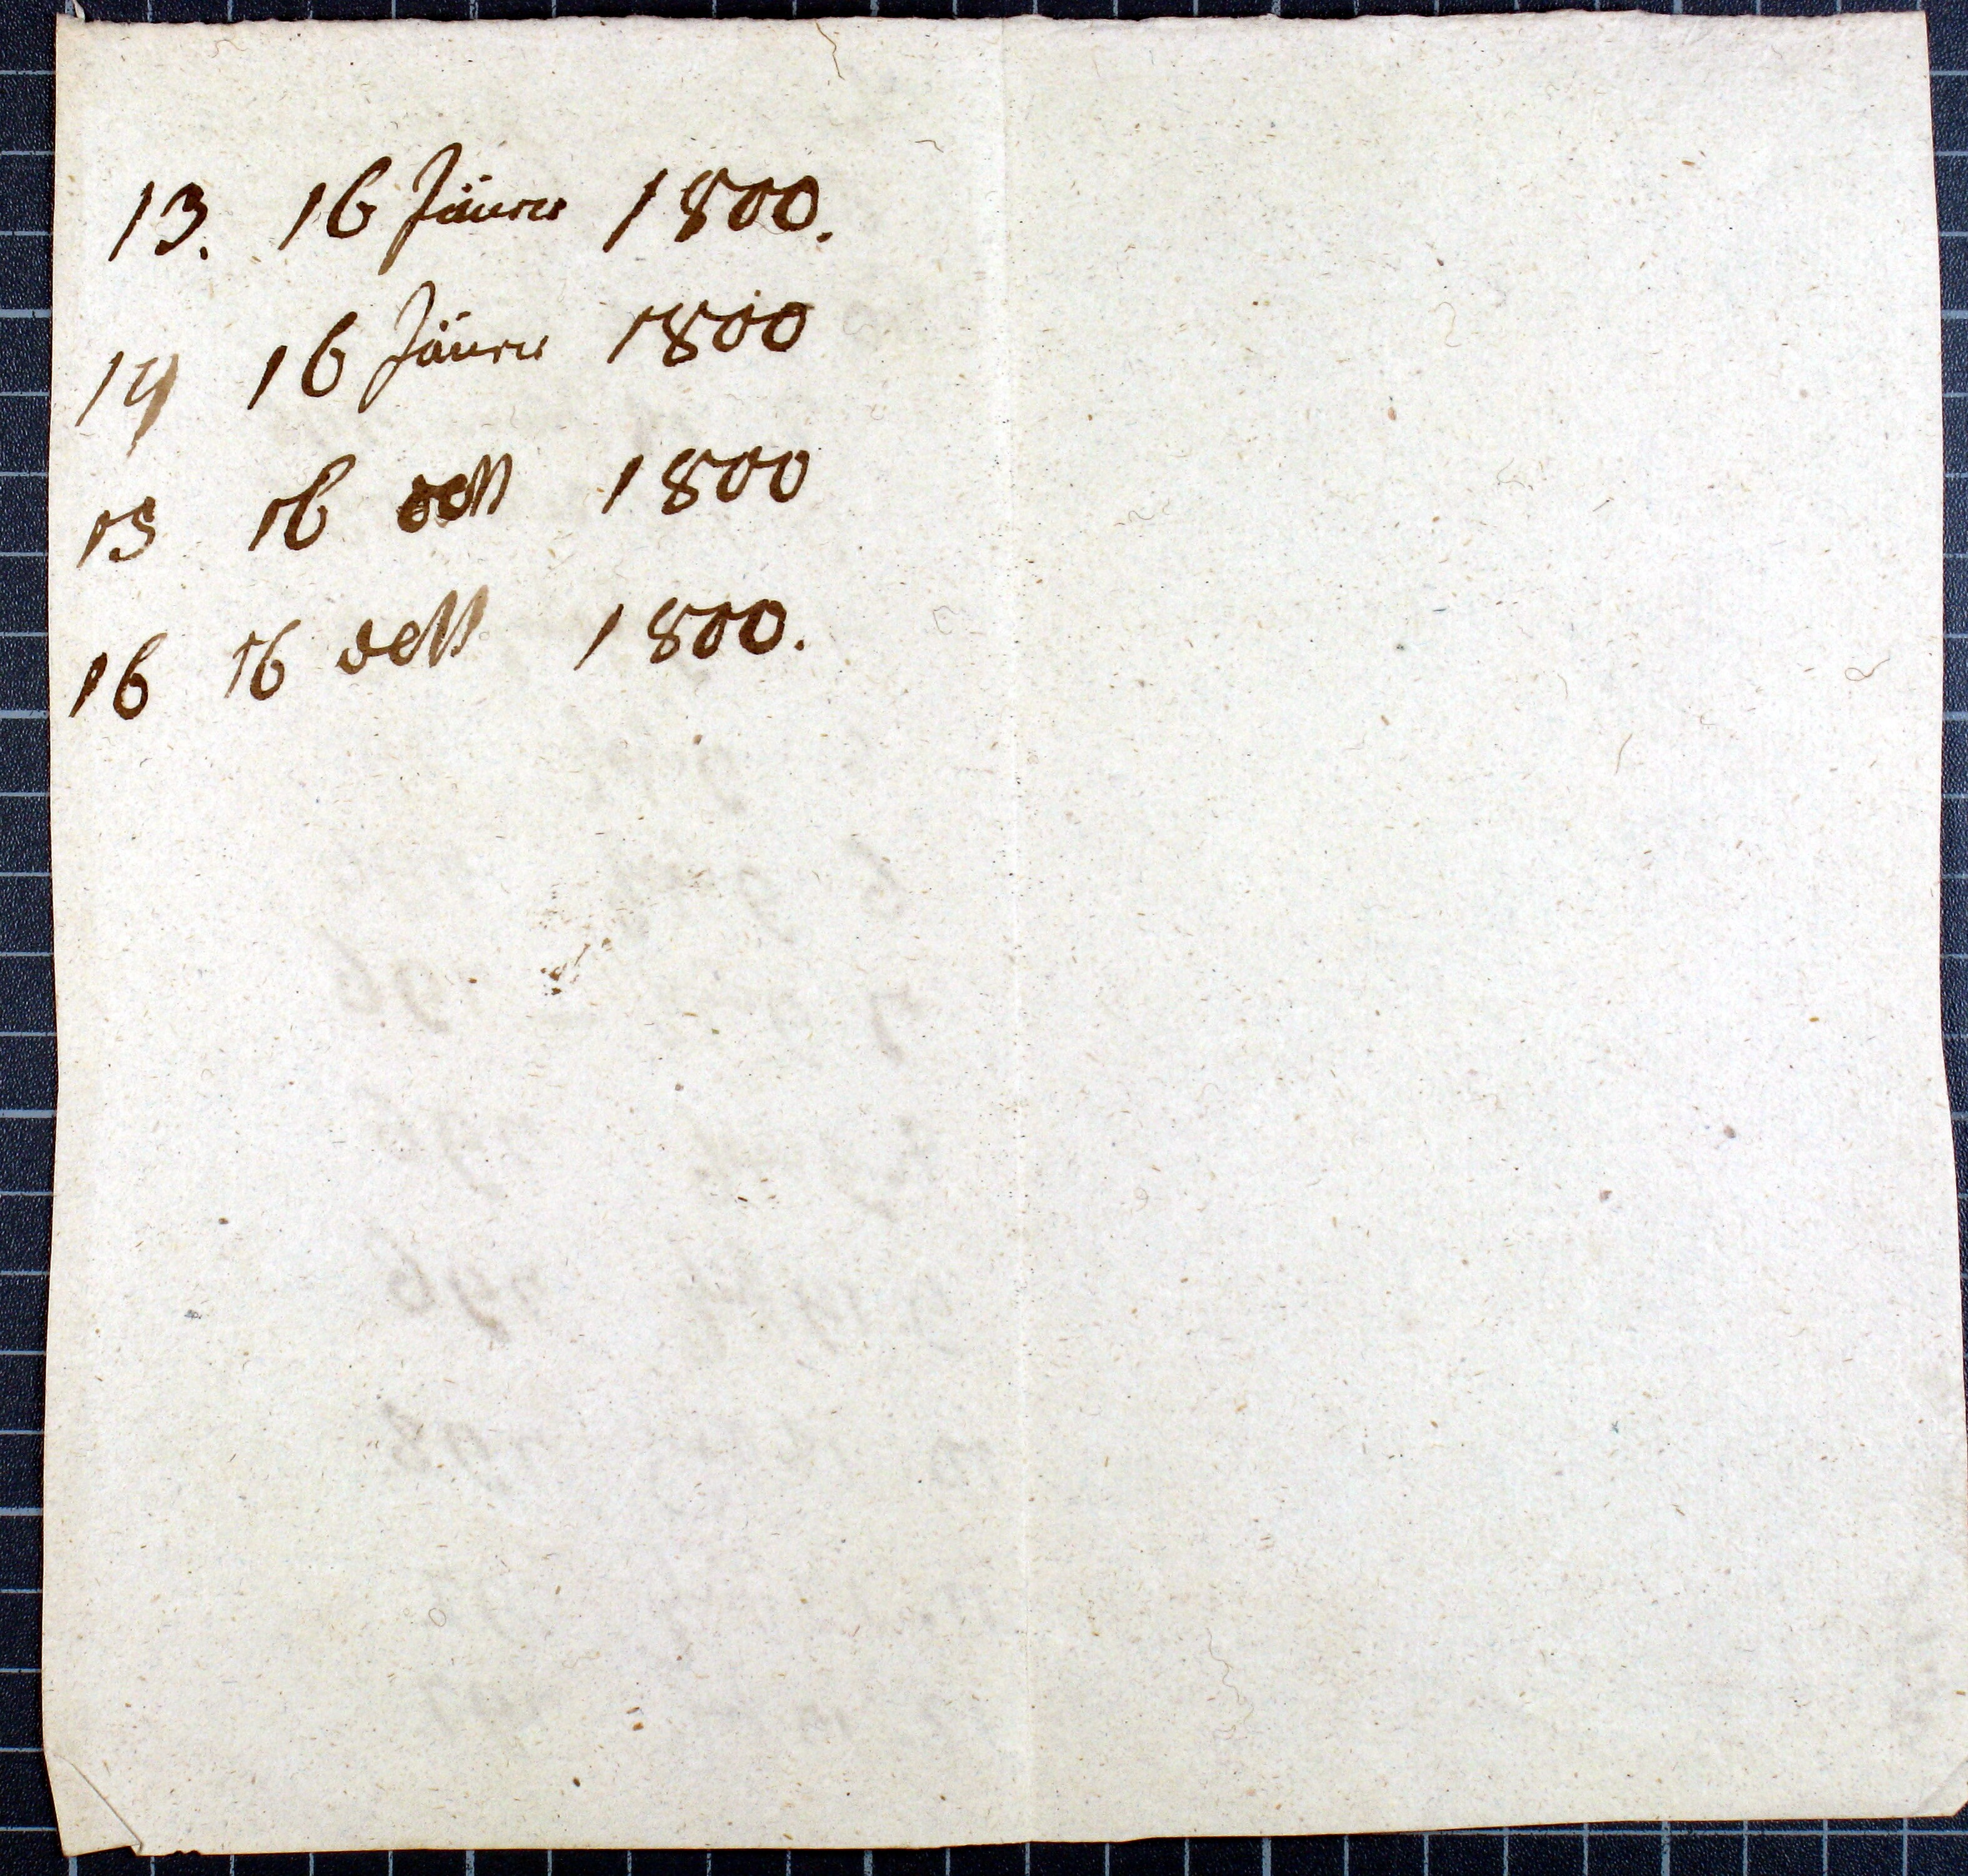 13. 16 Jäner 1800.
14 16 Jäner 1800
15 16 dett 1800
16 16 dett 1800.